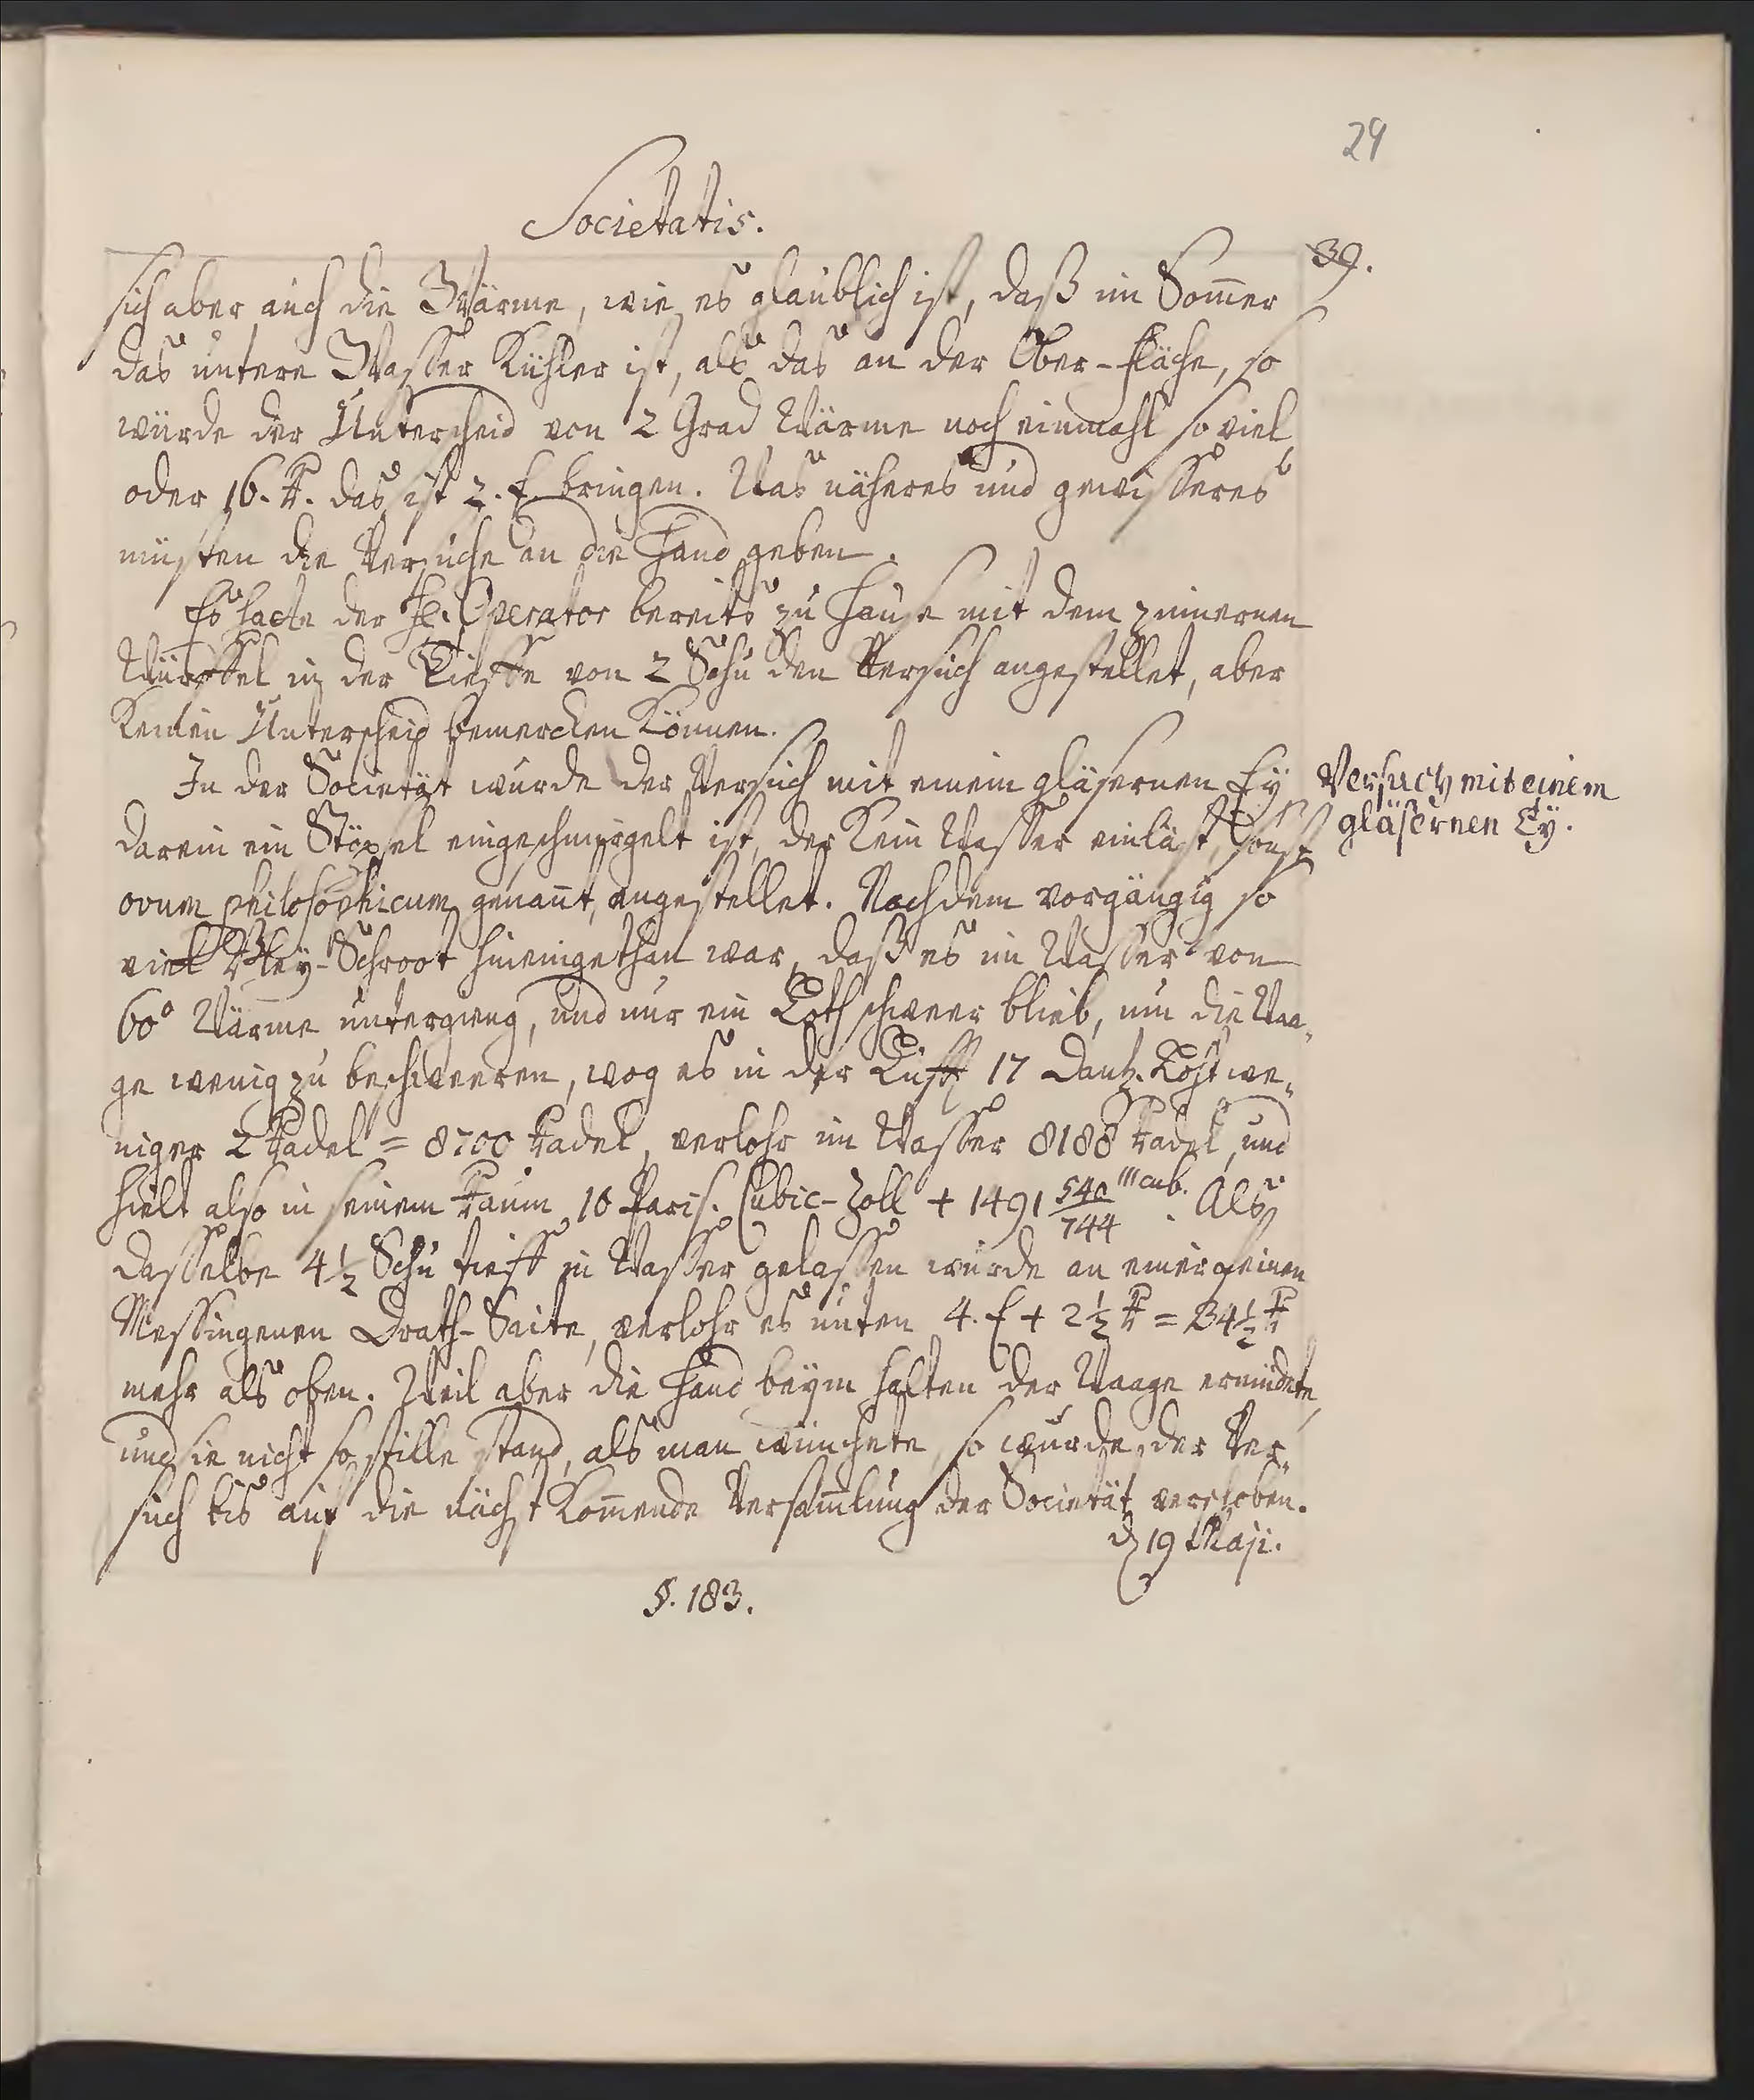 29
Societatis.
39.
sich aber auch die Wärme, wie es glaublich ist, daß im Som̄er
das untere Wasser Kühler ist, als das an der Ober-fläche, so
würde der Unterscheid von 2 Grad Wärme noch einmahl so viel,
oder 16. das ist 2. bringen. Was näheres und gewisseres
müsten die Versuche an die Hand geben.
Es hatte der H. Operator bereits zu Hause mit dem zinnernen
Würffel in der Tieffe von 2 Schu den Versuch angestellet, aber
Keinen Unterscheid bemercken Können.
In der Societät wurde der Versuch mit einem gläsernen Ey
Versuch mit einem
gläsernen Ey.
darein ein Stöpsel eingeschmirgelt ist, der Kein Wasser einläst, sonst
ovum philosophicum genan̄t, angestellet. Nachdem vorgängig so
viel Bley-Schroot hineingethan war, daß es im Wasser von
60° Wärme untergieng, und nur ein Loth schweer blieb, um die Waa-
ge wenig zu beschweeren, wog es in der Lufft 17 Dantz. Loht we-
niger 2 = 8700, verlohr im Wasser 8188, und
hielt also in seinem Raum 10 Paris. Cubic-Zoll + 1491 540/744 ''' cub. Als
dasselbe 4 1/2 Schu tieff in Wasser gelassen wurde an einer feinen
Messingenen Drath-Saite, verlohr es unten 4. + 2 1/2 = 34 1/2
mehr als oben. Weil aber die Hand beym halten der Waage ermüdete,
und sie nicht so stille stand, als man wünschete, so wurde der Ver-
such bis auf die nächst Kom̄ende Versam̄lung der Societät verschoben.
d 19 Maji.
§. 183.